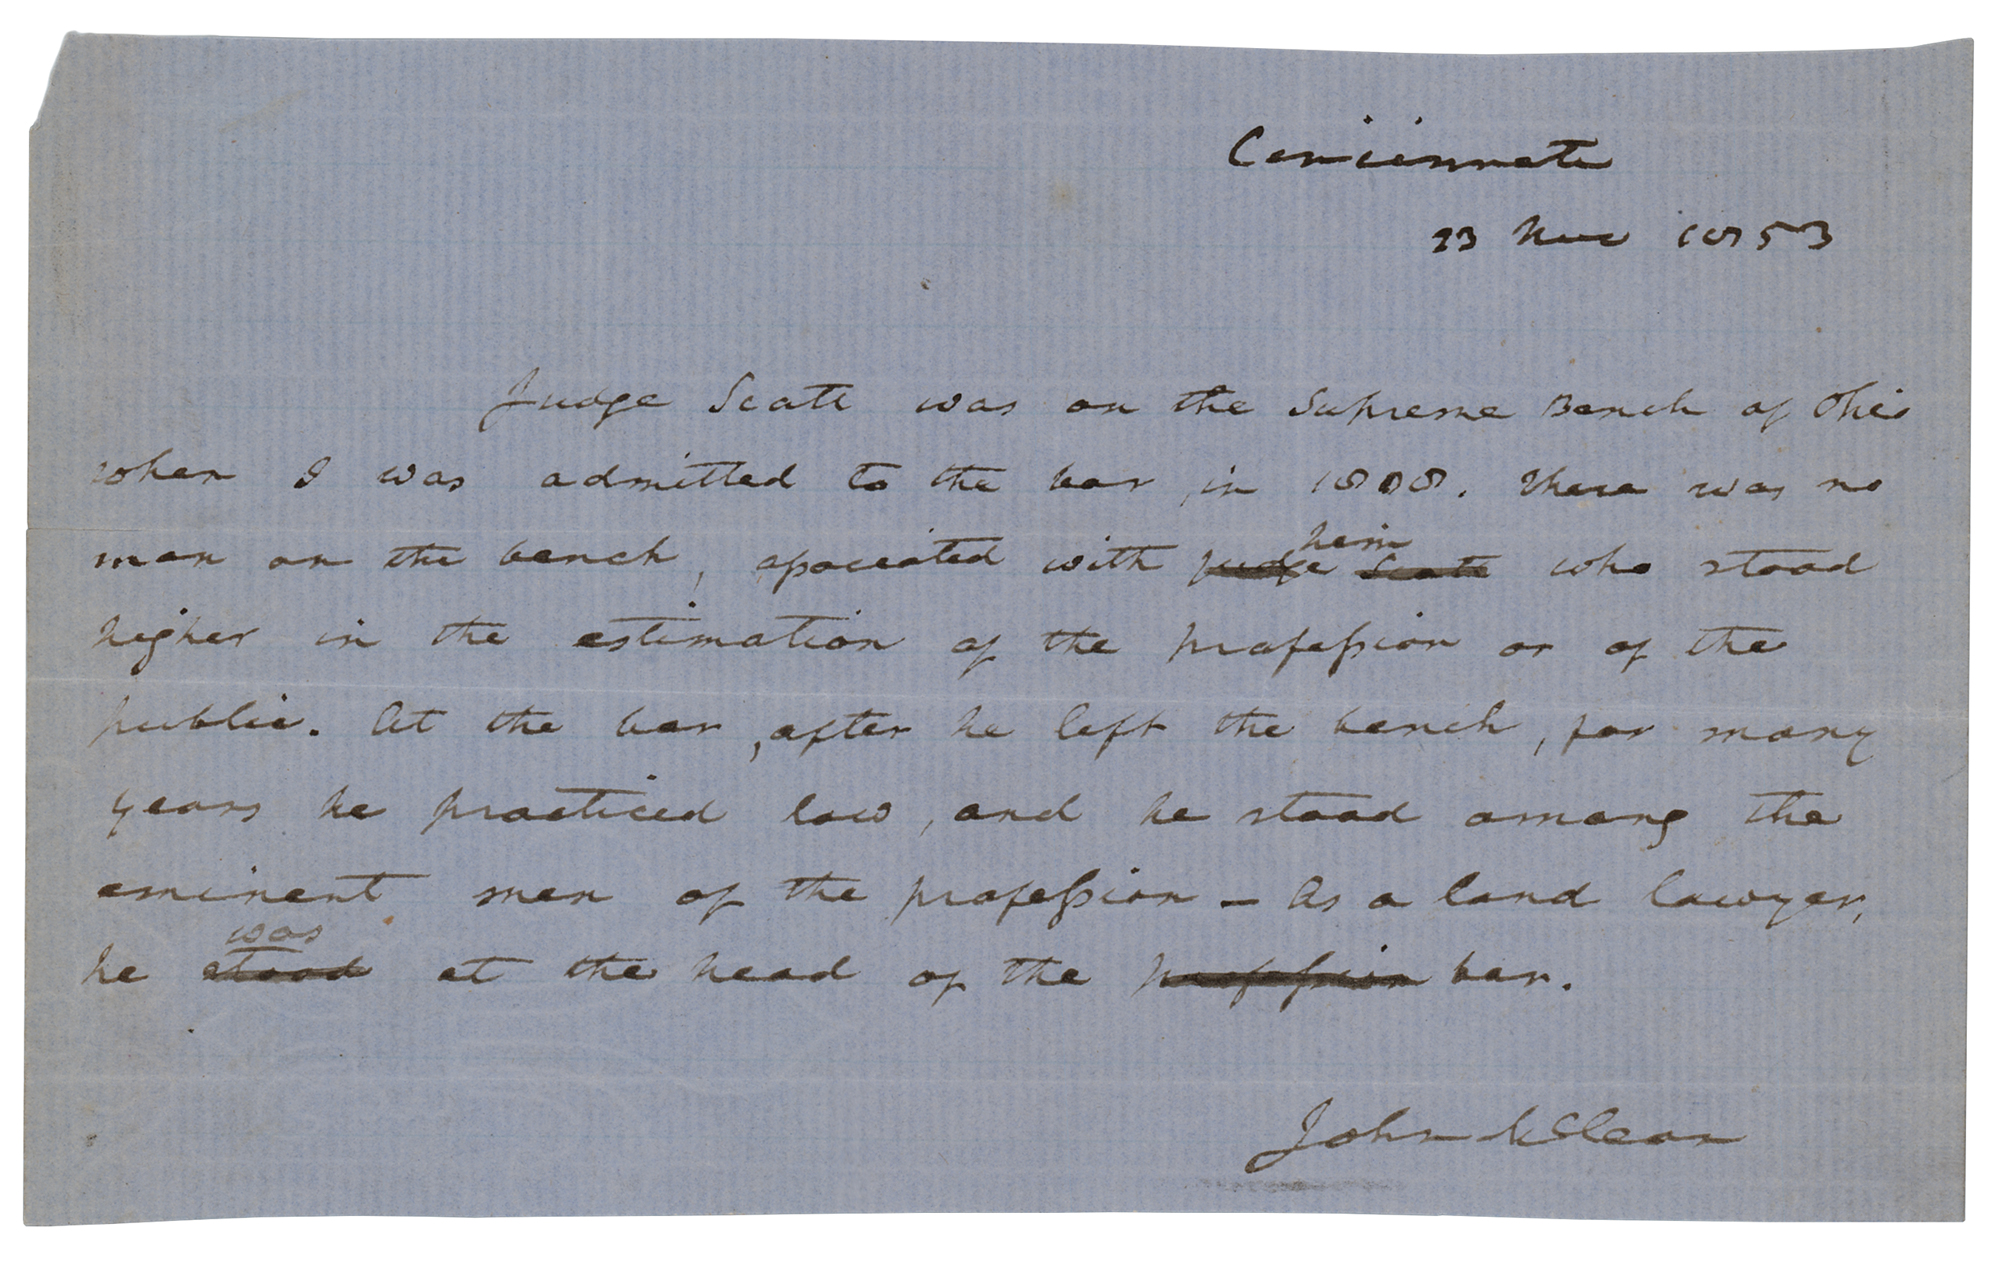 Cincinnati
23 Nov 1853
Judge Scott was on the Supreme Bench of Ohio
when I was admitted to the bar, in 1808. There was no
man on the bench, associated with ~~Judge Scott~~ him who stood
higher in the estimation of the profession or of the
public. At the bar, after he left the bench, for many
years he practiced law, and he stood among the
eminent men of the profession – As a land lawyer,
he ~~stood~~ was at the head of the ~~profession~~ bar.
John McLean